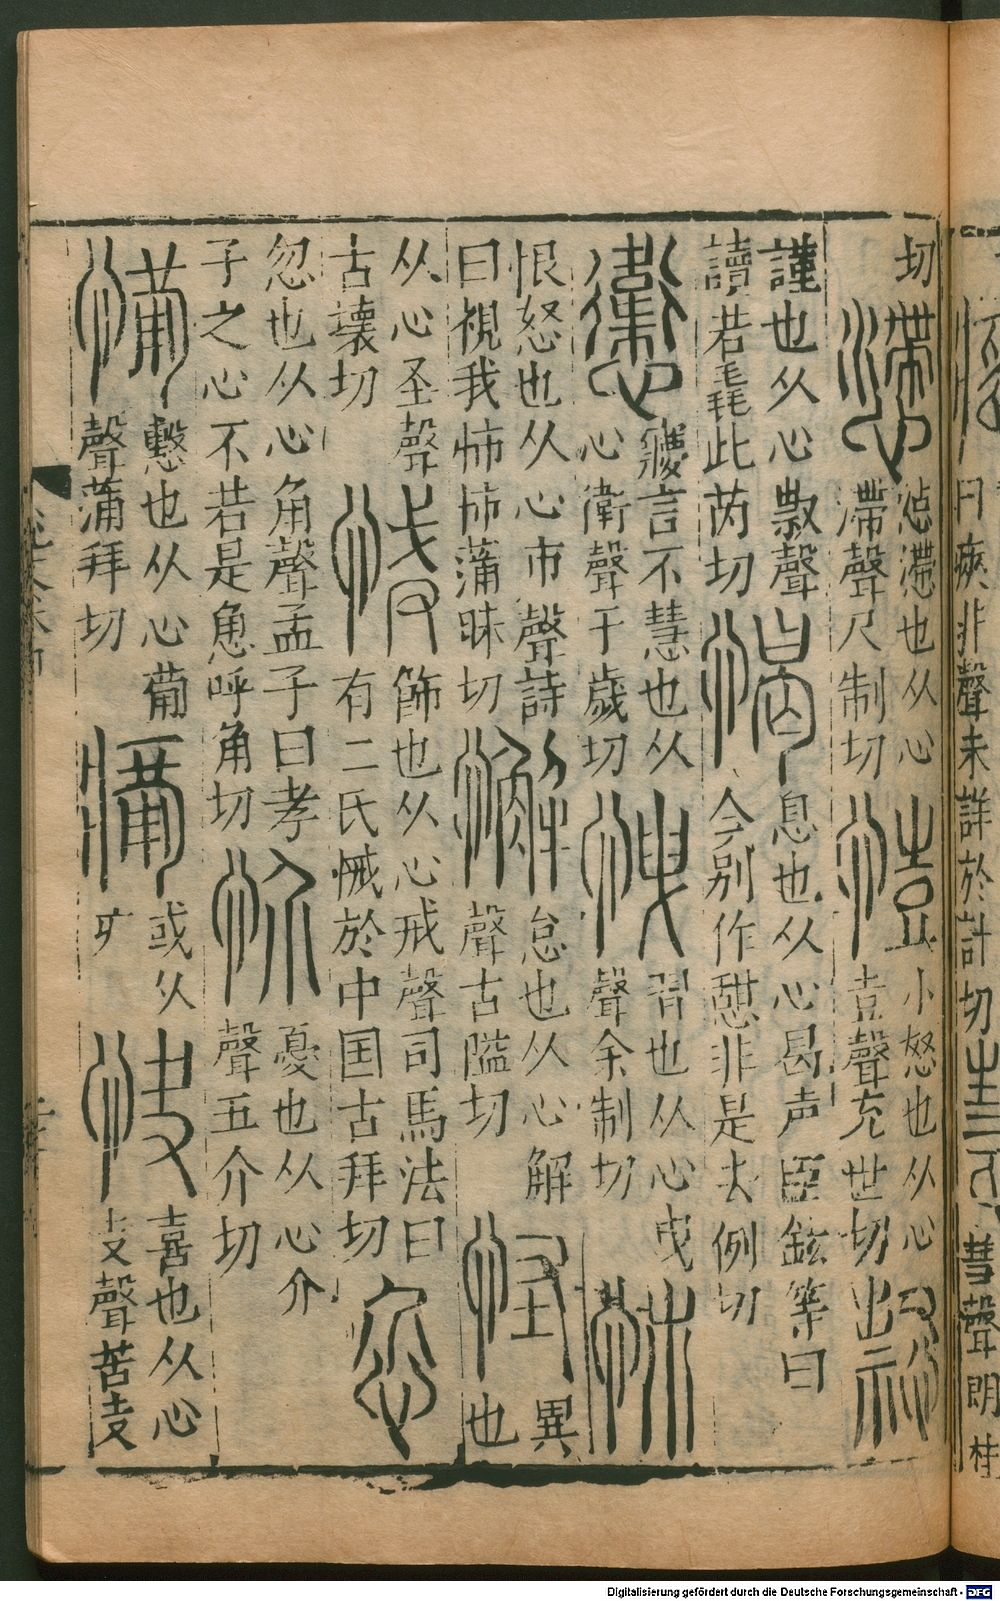 曰瘱非聲未詳於計切 彗聲朗桂
切懘惉懘也从心滯聲尺制切𢠵小怒也从心壴聲充世切
謹也从心㕞聲讀若毳此芮切愒息也从心曷声臣鉉等曰今别作憩非是去例切
㦣寱言不慧也从心衛聲于歲切怈習也从心曳聲余制切㤄
恨怒也从心巿聲詩曰視我㤄㤄蒲昧切懈怠也从心解聲古隘切怪異也
从心圣聲古壞切悈飾也从心戒聲司馬法曰有二氏悈於中囯古拜切㤉
忽也从心角聲孟子曰孝子之心不若是㤉呼角切忦憂也从心介聲五介切
𢣏慗也从心葡聲蒲拜切 或从疒快喜也从心夬聲苦夬切
Digitalisierung gefördert durch die Deutsche Forschungsgemeinschaft - DFG